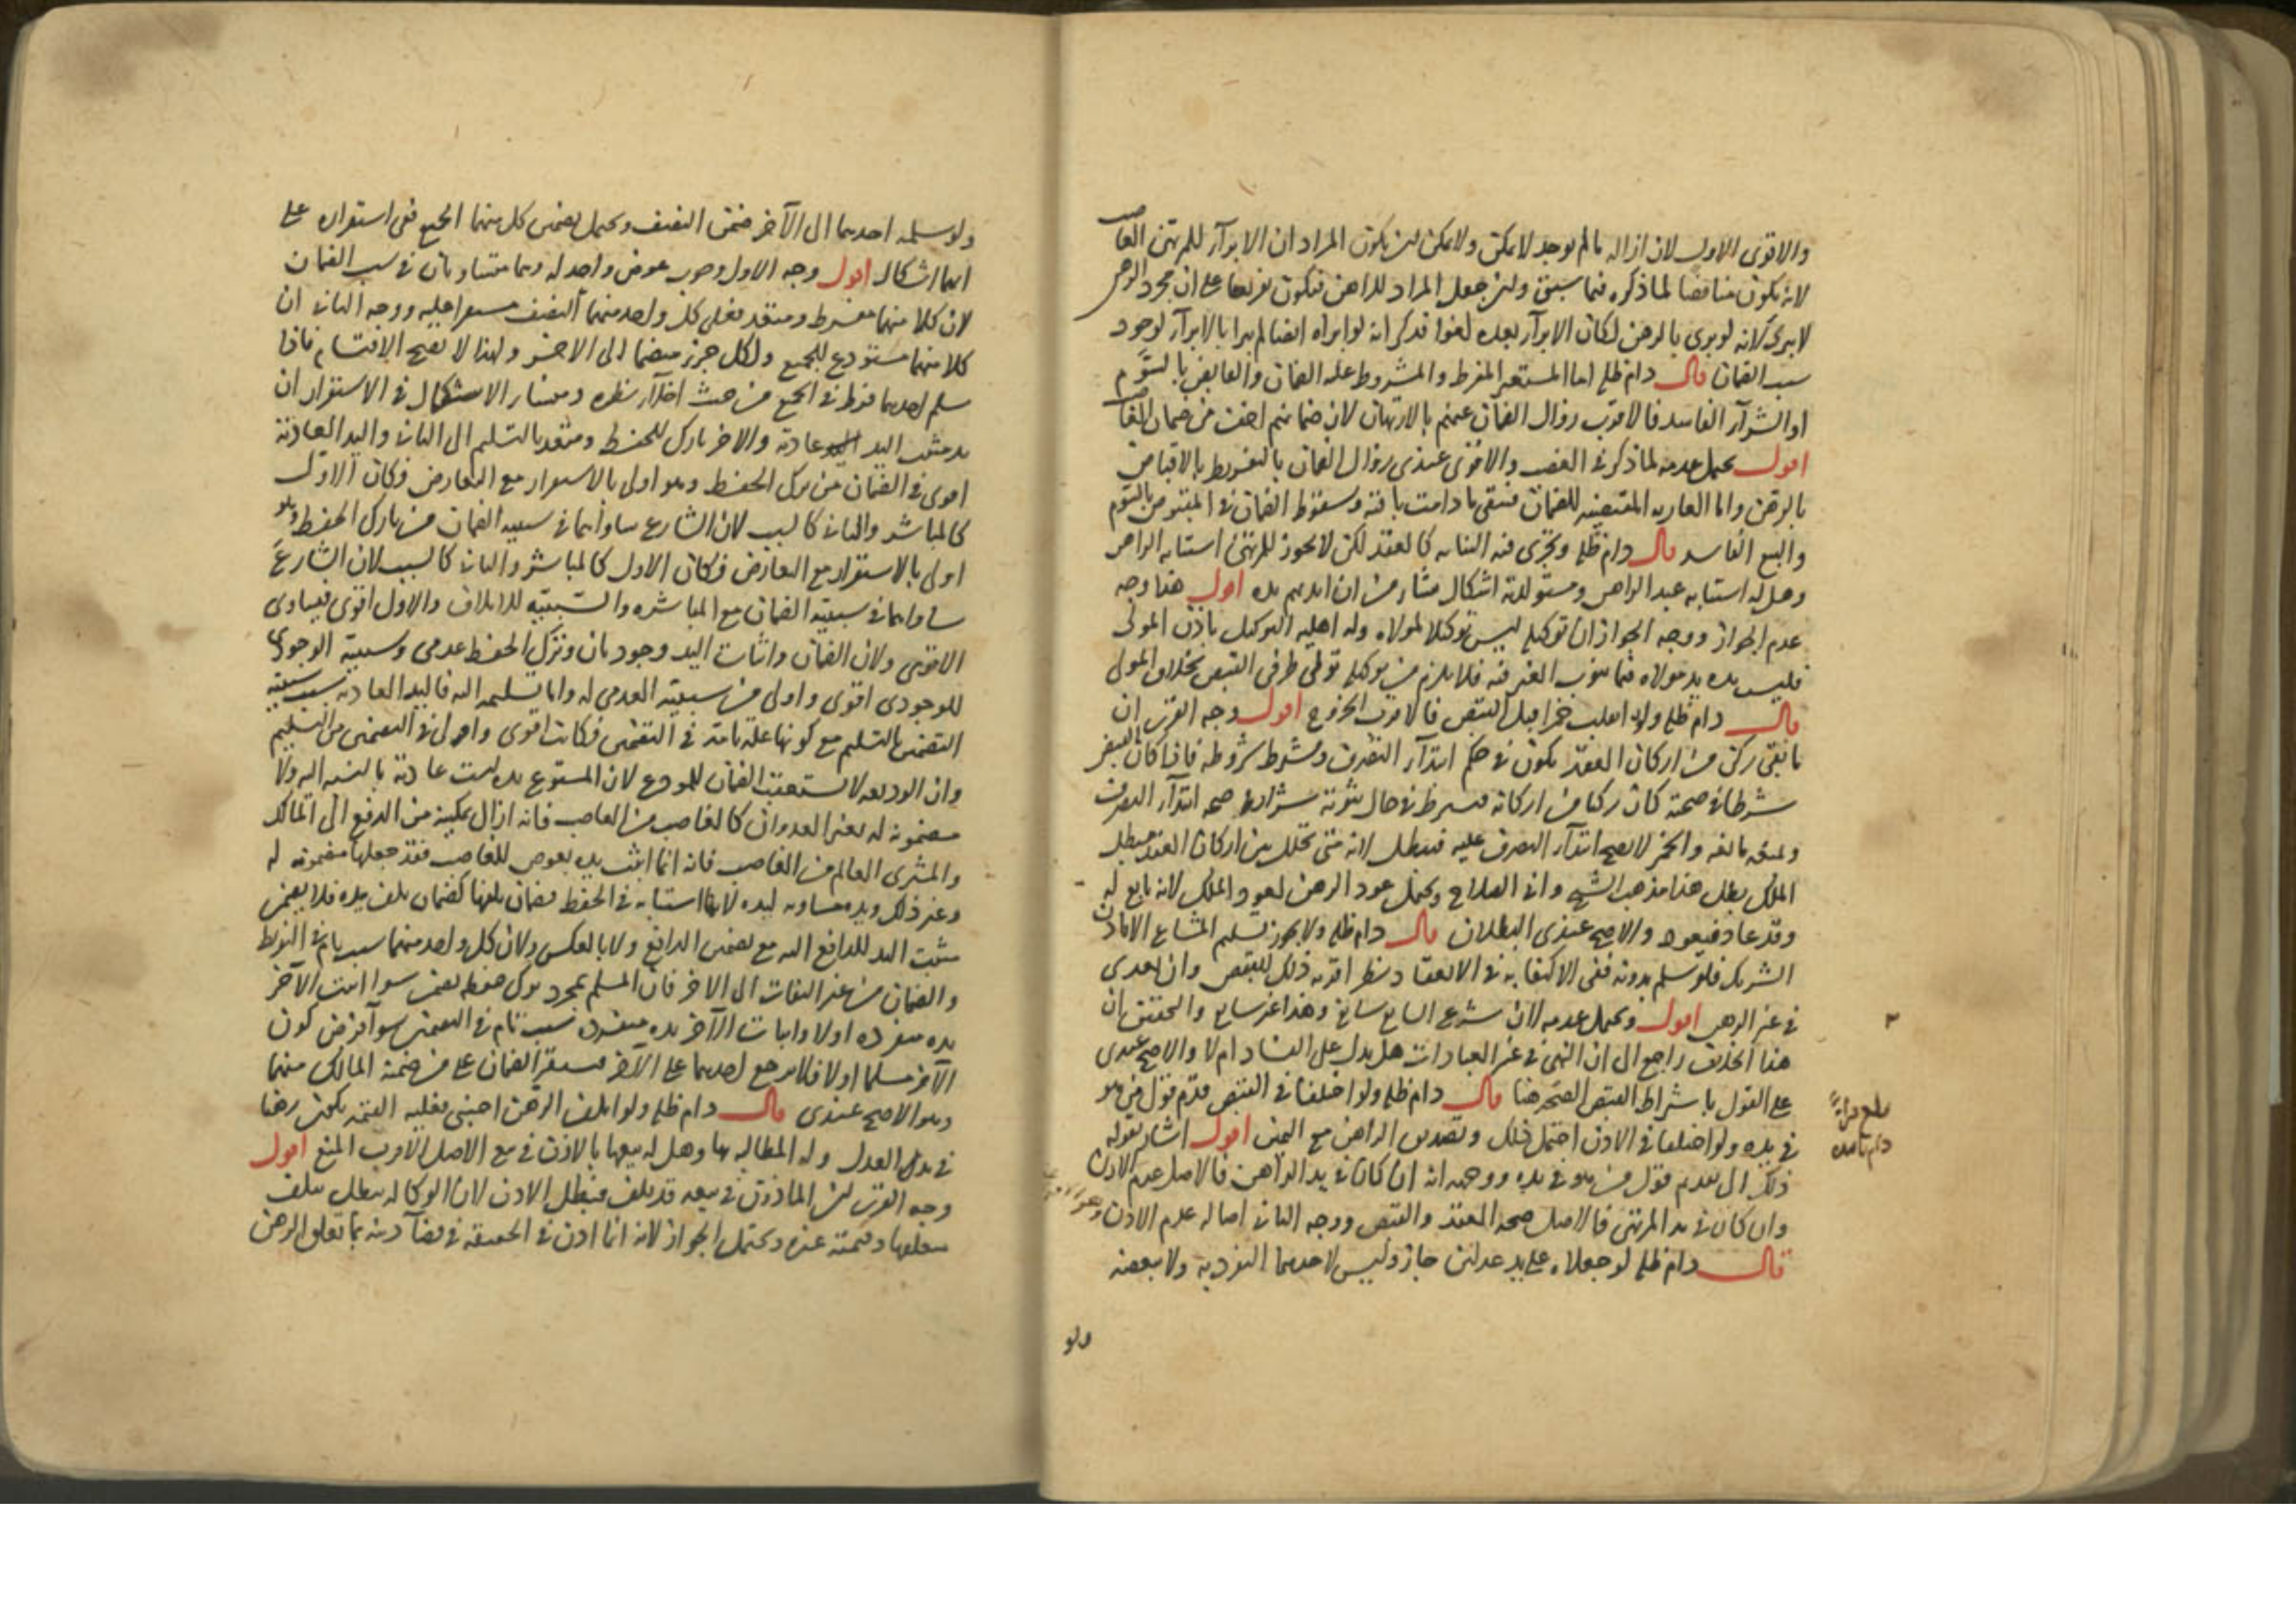 والاقوى الاول لان ازاله ما لم يوجد لا يمكن ولا يمكن ان يكون المراد ان الابرآء للمرتهن الغاصب
لانه يكون مناقضا لما ذكره فيما سبق ولئن جعل المراد للراهن فيكون تفريعا على ان مجرد الرهن
لا يبرى لانه لو برى بالرهن لكان الابرآء بعده لغوا فذكر انه لو ابراه ايضا لم يبرا بالابرآء لوجود
سبب الضمان قال دام ظله اما المستعير المفرط والمشروط عليه الضمان والقابض بالسوم
او الشرآء الفاسد فالاقرب زوال الضمان عنهم بالارتهان لان ضمانهم اخف من ضمان الغاصب
اقول يحتمل عدمه لما ذكر في الغصب والاقوى عندى زوال الضمان بالتفريط بالاقباض
بالرهن واما العاريه المقتضيه للضمان فتبقى ما دامت باقية وسقوط الضمان في المقبوض بالسوم
والبيع الفاسد قال دام ظله ويجرى فيه النيابه كالعقد لكن لا يجوز للمرتهن استنابه الراهن
وهل له استنابه عبد الراهن ومستولدته اشكال ينشأ من ان ايديهم يده اقول هذا وجه
عدم الجواز ووجه الجواز ان توكيله ليس توكيلا لمولاه وله اهليه التوكيل باذن المولى
فليس يده يد مولاه فيما ينوب الغير فيه فلا يلزم من توكيله تولى طرفى القبض بخلاف المولى
قال دام ظله ولو انقلب خمرا قبل القبض فالاقرب الخروج اقول وجه القرب ان
ما بقى ركن من اركان العقد يكون في حكم ابتدآء التصرف ومشروط بشروطه فاذا كان القبض
شرطا في صحته كان ركنا من اركانه فيشترط في حال ثبوته شرائط صحه ابتدآء التصرف
والخمر لا يصح ابتدآء التصرف عليه فيبطل لانه متى تخلل بين اركان العقد مبطل
الملك بطل هذا مذهب الشيخ وابن البراج ويحتمل عود الرهن لعود الملك لانه تابع له
وقد عاد فيعود والاصح عندى البطلان قال دام ظله ولا يجوز تسليم المشاع الا باذن
الشريك فلو سلم بدونه ففى الاكتفا به في الانعقاد نظر اقربه ذلك للقبض وان تعدى
في غير الرهن اقول ويحتمل عدمه لان شرع السايع سايغ وهذا غير سايغ والتحقيق ان
هذا الخلاف راجع الى ان النهى في غير العبادات هل يدل على الفساد ام لا والاصح عندى
على القول باشتراط القبض الصحه هنا قال دام ظله ولو اختلفا في القبض قدم قول من هو
في يده ولو اختلفا في الاذن احتمل ذلك وتصديق الراهن مع اليمين اقول اشار بقوله
ذلك الى تقديم قول من هو في يده ووجهه انه ان كان في يد الراهن فالاصل عدم الاذن
وان كان في يد المرتهن فالاصل صحه العقد والقبض ووجه الثانى اصاله عدم الاذن
قال دام ظله لو جعلاه على يد عدلين جاز وليس لاحدهما التفرد به ولا ببعضه
ولو
ولو سلمه احدهما الى الآخر ضمن النصف ويحتمل تضمين كل منهما الجميع ففى استقراره على
ايهما اشكال اقول وجه الاول وجوب عوض واحد له وهما متساويان في سبب الضمان
لان كلا منهما مفرط ومتعد فعلى كل واحد منهما النصف مستقرا عليه ووجه الثانى ان
كلا منهما مستودع للجميع ولكل جزء منضما الى الاخر ولهذا لا يصح الاقتسام فاذا
سلم احدهما فرط في الجميع من حيث اخلآء نظره ومنشأ الاشكال في الاستقرار ان
يد مثبت اليد عادية والاخر تارك للحفظ ومتعد بالتسليم الى الثانى واليد العادية
اقوى في الضمان من ترك الحفظ وهو اولى بالاستقرار مع التعارض وكان الاول
كالمباشر والثانى كالسبب لان الشارع ساواهما في سببيه الضمان من تارك الحفظ وهو
اولى بالاستقرار مع التعارض فكان الاول كالمباشر والثانى كالسبب لان الشارع
ساواهما في سببية الضمان مع المباشره والسببيه للاتلاف والاول اقوى فيساوى
الاقوى ولان الضمان واثبات اليد وجوديان وترك الحفظ عدمى وسببية الوجودى
للوجودى اقوى واولى من سببيه العدمى له واما تسليمه اليه فاليد العاديه سبب سببيه
التضمين بالتسليم مع كونها علة تامة في التضمين فكانت اقوى واولى في التضمين من التسليم
وان الوديعه لا تستعقب الضمان للمودع لان المستودع يده ليست عادية بالنسبه اليه ولا
مضمونة له بغير العدوان كالغاصب من الغاصب فانه ازال تمكينه من الدفع الى المالك
والمشترى العالم من الغاصب فانه انما اثبت يده بعوض للغاصب فقد جعلها مضمونه له
وغير ذلك ويده مساويه ليده لانهما استنابه في الحفظ فضمان تلفها كضمان تلف يده فلا يضمن
مثبت اليد للدافع اليه مع تضمين الدافع ولا بالعكس ولان كل واحد منهما سبب تام في التفريط
والضمان من غير التفات الى الاخر فان المسلم بمجرد ترك حفظه يضمن سوا اثبت الآخر
يده منفرده اولا واثبات الآخر يده منفردا سبب تام في التضمين سوآء فرض كون
الآخر مسلما اولا فلا يرجع احدهما على الآخر فيستقر الضمان على من ضمنه المالك منهما
وهو الاصح عندى قال دام ظله ولو اتلف الرهن اجنبى فعليه القيمه يكون رهنا
في يد العدل وله المطالبه بها وهل له بيعها بالاذن في بيع الاصل الاقرب المنع اقول
وجه القرب ان الماذون في بيعه قد تلف فيبطل الاذن لان الوكاله تبطل بتلف
متعلقها وقيمته غيره ويحتمل الجواز لانه انما اذن في الحقيقه في قضآء دينه بما تعلق الرهن